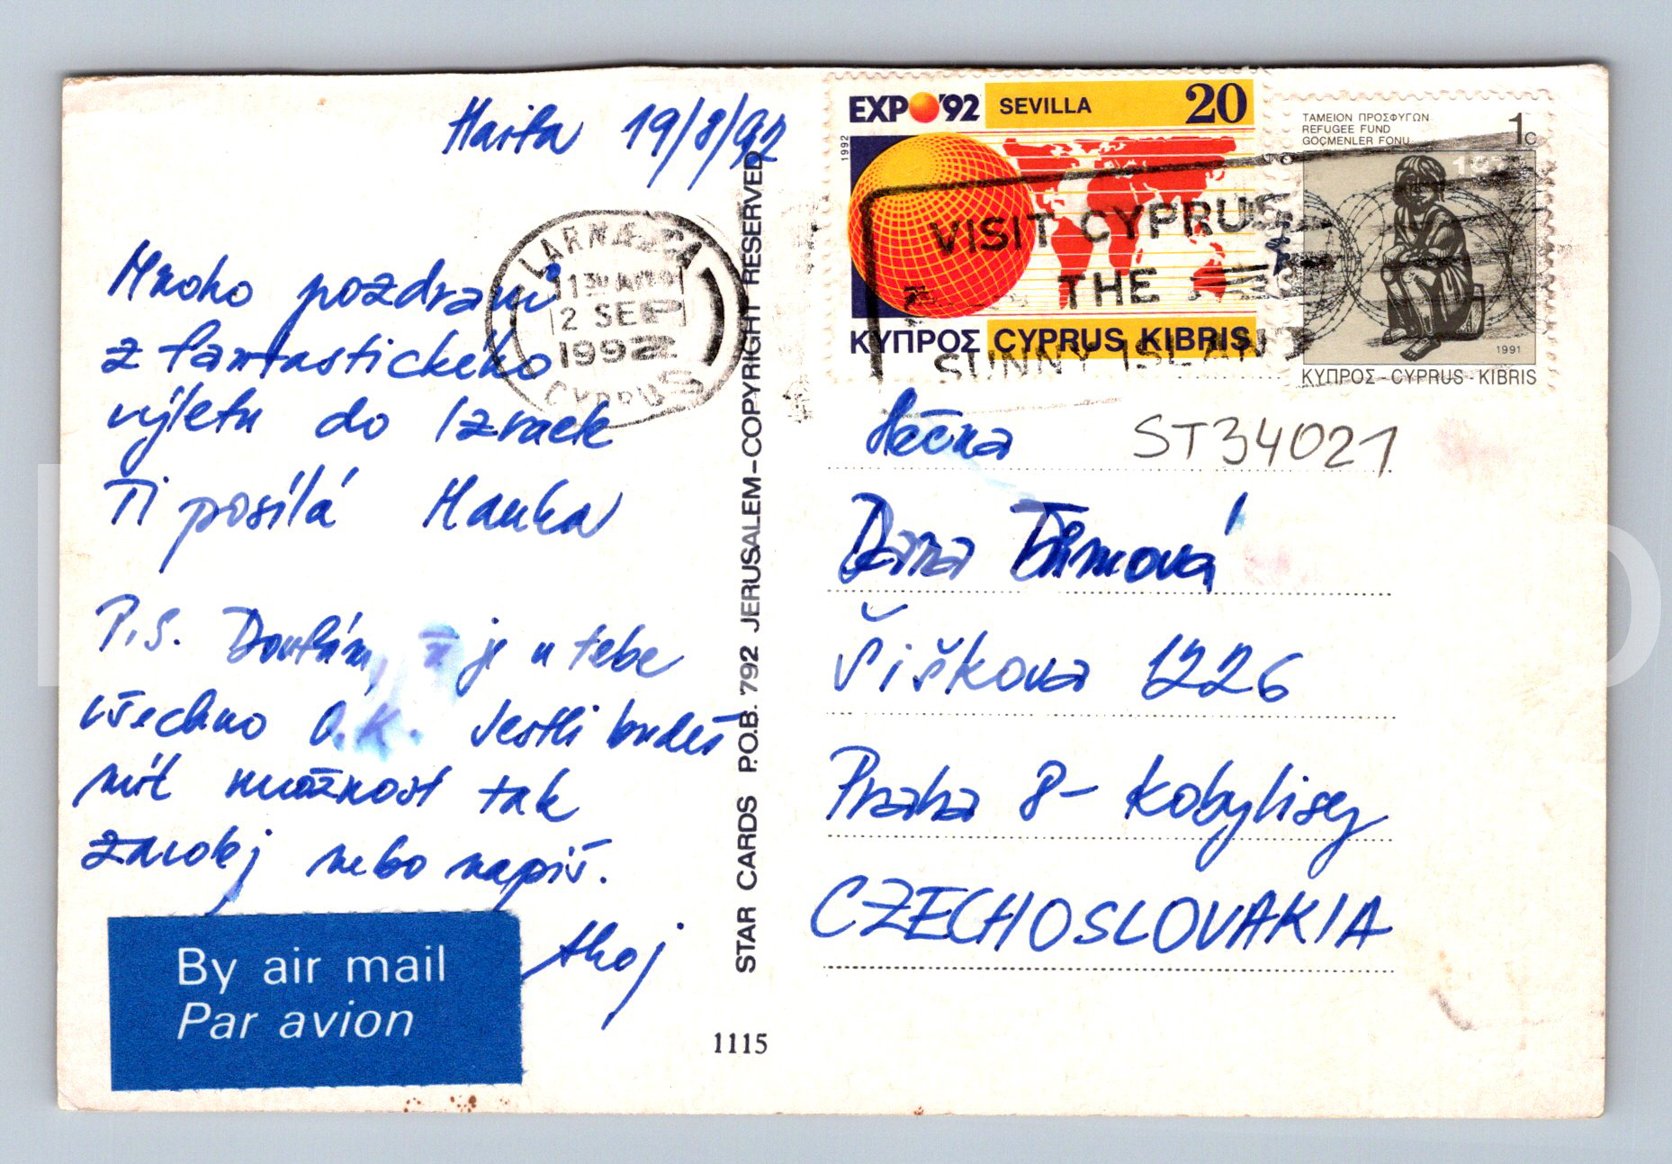 Haifa 19/8/92
Mnoho pozdravů
z fantastického
výletu do Izraele
Ti posílá Hanka
P.S. Doufám, ž je u tebe
všechno O.K. Jestli budeš
mít možnost tak
zavolej nebo napiš.
Ahoj
By air mail
Par avion
STAR CARDS P.O.B. 792 JERUSALEM-COPYRIGHT RESERVED
1115
LARNACA
2 SEP
1992
CYPRUS
EXPO'92 SEVILLA 20
1992
ΚΥΠΡΟΣ CYPRUS KIBRIS
VISIT CYPRUS
THE
SUNNY ISLAND
ΤΑΜΕΙΟΝ ΠΡΟΣΦΥΓΩΝ
REFUGEE FUND
GÖÇMENLER FONU
1c
1991
ΚΥΠΡΟΣ-CYPRUS-KIBRIS
Slečna
ST34021
Dana
Šiškova 1226
Praha 8- Kobylisy
CZECHOSLOVAKIA